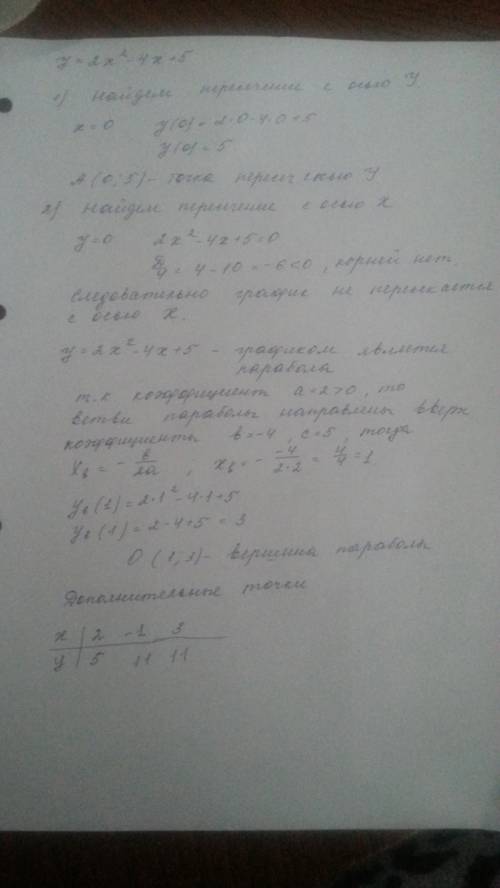 y = 2x² - 4x + 5
1) Найдем пересечение с осью Y
x = 0 y(0) = 2·0 - 4·0 + 5
y(0) = 5
A (0; 5) - точка пересеч с осью Y
2) Найдем пересечение с осью X
y = 0 2x² - 4x + 5 = 0
D/4 = 4 - 10 = -6 < 0, корней нет.
Следовательно график не пересекается
с осью X.
y = 2x² - 4x + 5 - графиком является
парабола
т.к коэффициент a = 2 > 0, то
ветви параболы направлены вверх
коэффициенты b = -4, c = 5, тогда
xв = - b/2a , xв = - -4/2·2 = 4/4 = 1
yв(1) = 2·1² - 4·1 + 5
yв(1) = 2 - 4 + 5 = 3
O (1; 3) - вершина параболы
Дополнительные точки
x | 2 -1 3
y | 5 11 11